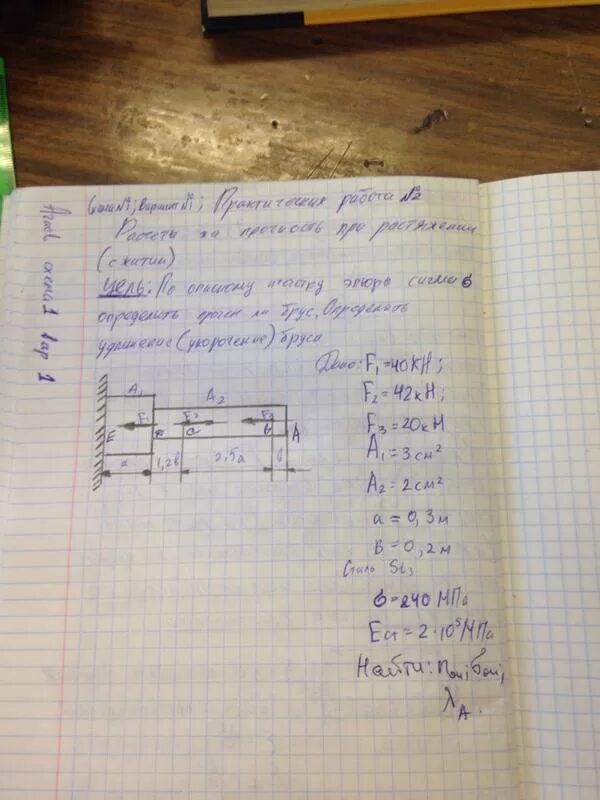 схема №1; Вариант №1; Практическая работа №2
Расчеты на прочность при растяжении
(сжатии)
Цель: По опасному участку эпюры сигма σ
определить прочен ли брус. Определить
удлинение (укорочение) бруса
схема 1 вар 1
Дано: F1=40кН;
F2=42кН;
F3=20кН
A1=3см²
A2=2см²
a=0,3м
в=0,2м
Сталь St3
σ=240МПа
Eст=2·10⁵МПа
Найти:
λA.
A1
A2
F1
F2
F3
E
C
B
A
a
1,2в
2,5a
в